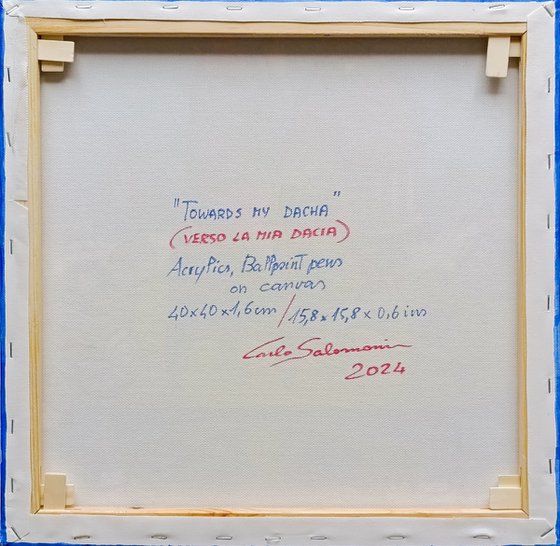 "TOWARDS MY DACHA"
(VERSO LA MIA DACIA)
Acrylics, Ballpoint pens
on canvas
40x40x1,6cm / 15,8x15,8x0,6 ins
Carlo Salomoni
2024